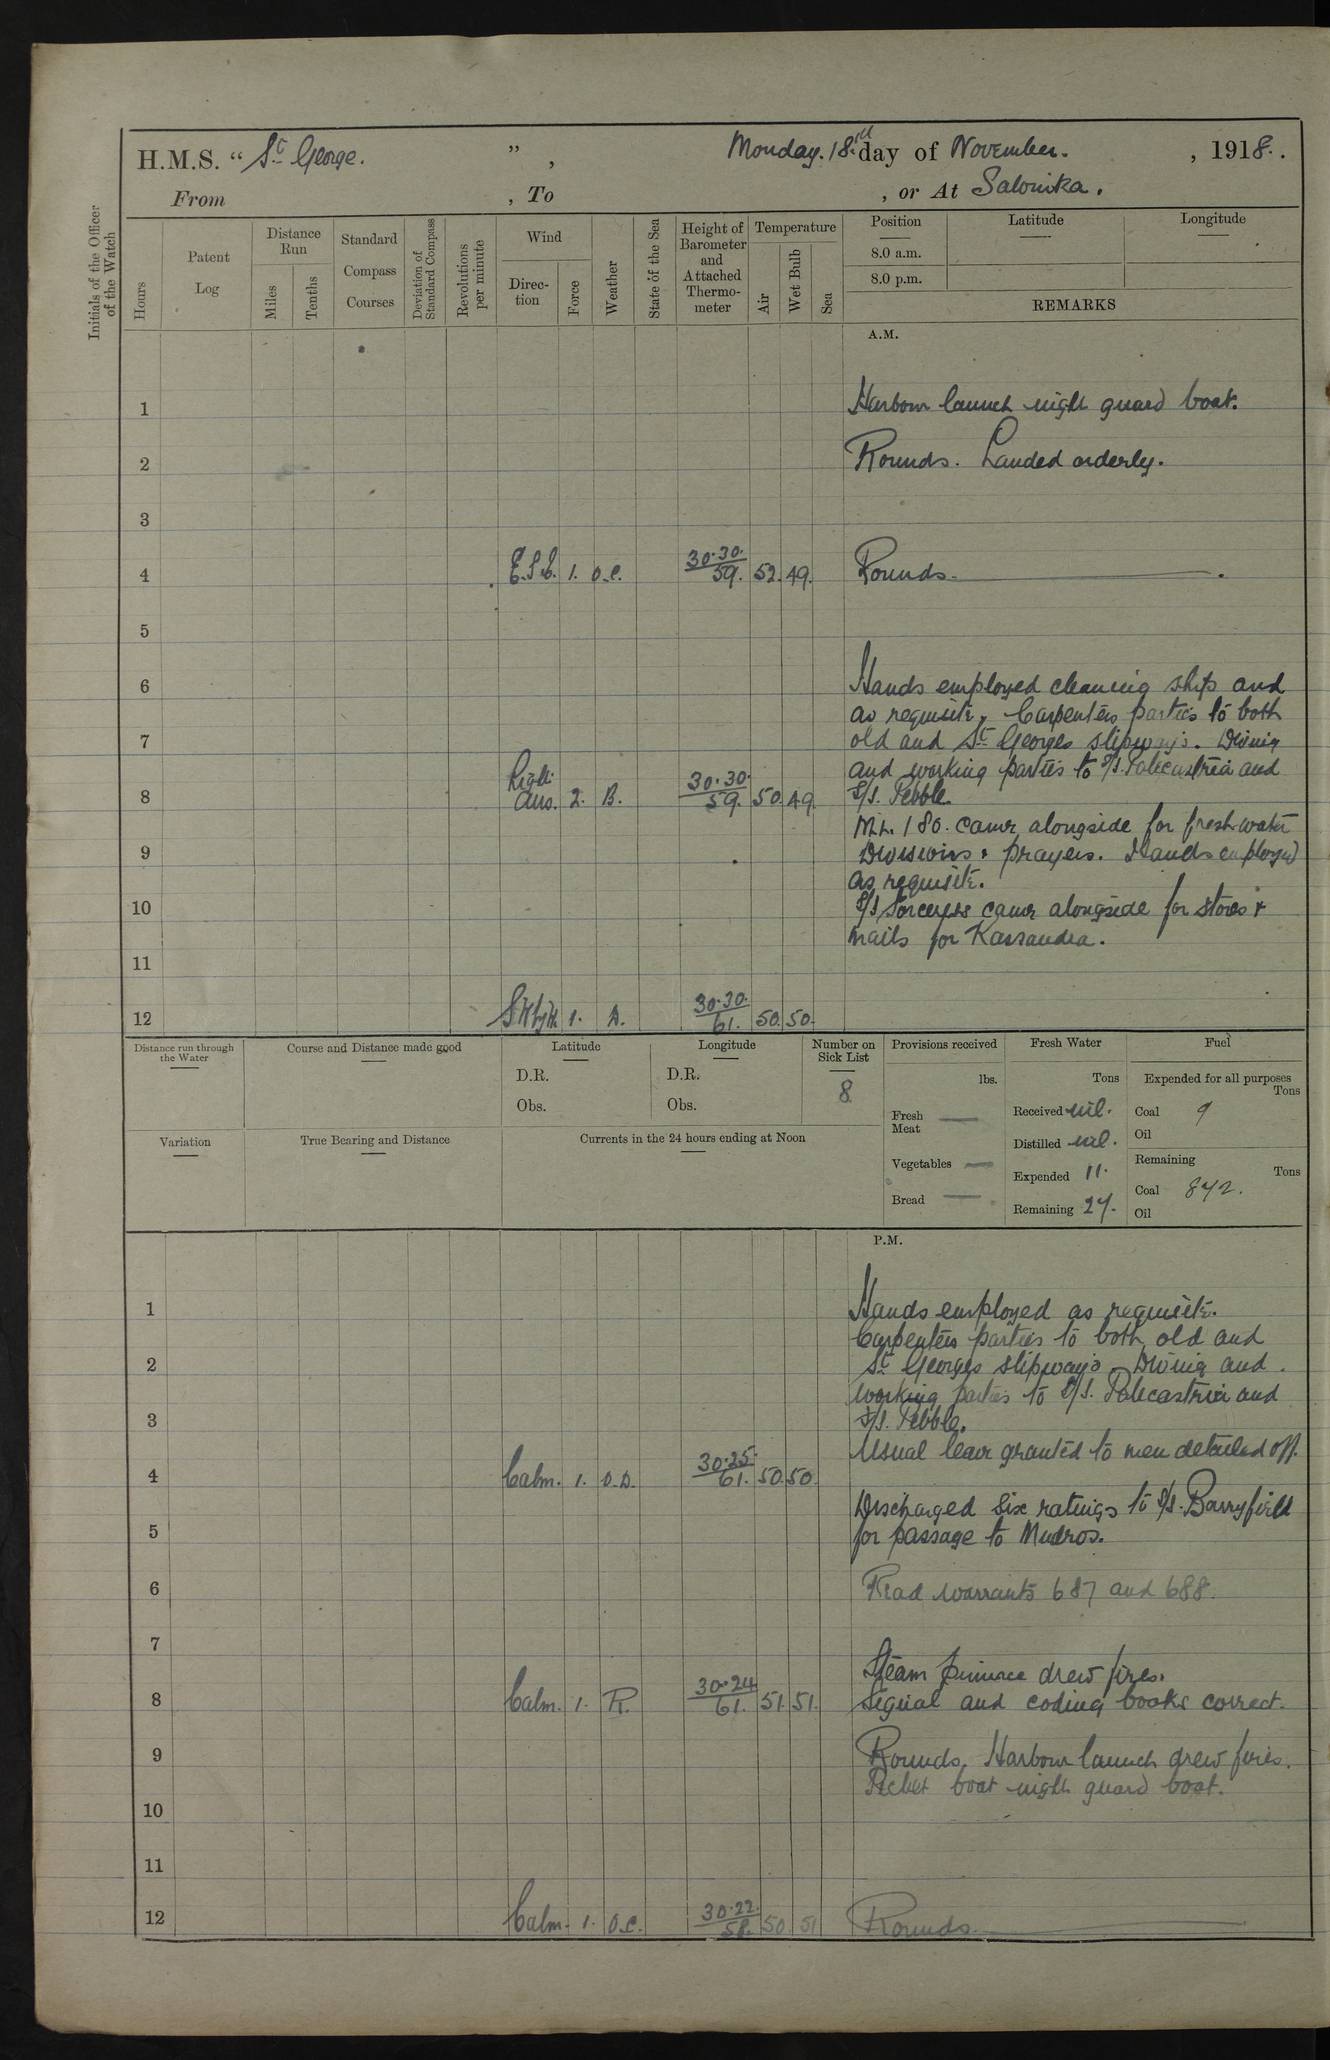 H.M.S. "St George. ", Monday. 18.rd day of November. , 1918. .
From , To , or At Salonika.
Initials of the Officer of the Watch
Hours
Patent Log
Distance Run
Miles
Tenths
Standard Compass Courses
Deviation of Standard Compass
Revolutions per minute
Wind
Direc-tion
Force
Weather
State of the Sea
Height of Barometer and Attached Thermo-meter
Temperature
Air
Wet Bulb
Sea
Position Latitude Longitude
8.0 a.m.
8.0 p.m.
REMARKS
A.M.
1 Harbour launch night guard boat.
2 Rounds. Landed orderly.
3
4 E.S.E. 1. O.C. 30.30. 59. 52. 49. Rounds.
5
6 Hands employed cleaning ship and
as requisite, Carpenters parties to both
7 old and St Georges slipways. Diving
and working parties to S/S. Palecastria and
8 Light Airs. 2. B. 30.30. 59. 50. 49. S/S. Pebble.
M.L. 180. came alongside for fresh water
9 Divisions & prayers. Hands employed
as requisite.
10 S/S Sorceress came alongside for stores &
mails for Kassandra.
11
12 1. D. 30.30. 61. 50. 50.
Distance run through the Water
Course and Distance made good
Latitude
D.R.
Obs.
Longitude
D.R.
Obs.
Number on Sick List
8
Provisions received
lbs.
Fresh Meat —
Vegetables —
Bread —
Fresh Water
Tons
Received nil.
Distilled nil.
Expended 11.
Remaining 27.
Fuel
Expended for all purposes
Tons
Coal 9
Oil
Remaining
Tons
Coal 842.
Oil
Variation
True Bearing and Distance
Currents in the 24 hours ending at Noon
P.M.
1 Hands employed as requisite.
Carpenters parties to both old and
2 St Georges slipways. Diving and
working parties to S/S. Palecastria and
3 S/S. Pebble.
Usual leave granted to men detailed off.
4 Calm. 1. O.D. 30.25. 61. 50. 50.
Discharged six ratings to S/S. Barryfield
5 for passage to Mudros.
6 Read warrants 687 and 688.
7
Steam pinnace drew fires.
8 Calm. 1. R. 30.24 61. 51. 51. Signal and coding books correct.
9 Rounds. Harbour launch drew fires.
Picket boat night guard boat.
10
11
12 Calm. 1. O.C. 30.22. 58. 50. 51 Rounds.